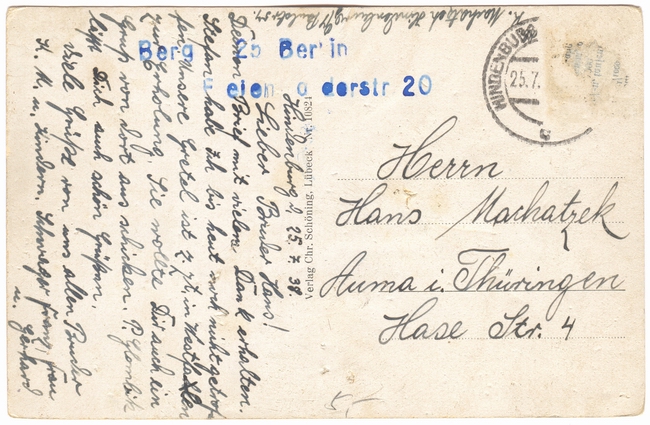 K. Machatzek Hindenburg O/S
Berg 25 Ber in
elen a derstr 20
HINDENBURG
25.7.
c
Hindenburg d. 25.7.38.
Lieber Bruder Hans!
Deinen Brief mit vielem Dank erhalten.
Stefan habe ich bis heut noch nicht getrof
fen. Unsere Gretel ist z. Zt. in Westfahlen
zur Erholung. Sie wollte Dir auch ein
Gruß von dort aus schicken. P.
lässt Dich auch schön Grüßen.
Viele Grüße von uns allen Bruder
K. M. u. Kindern. Schwager Franz, Frau
u. Gerhard.
Verlag Chr. Schöning, Lübeck Nr. 10824
Herrn
Hans Machatzek
Auma i. Thüringen
Hase Str. 4